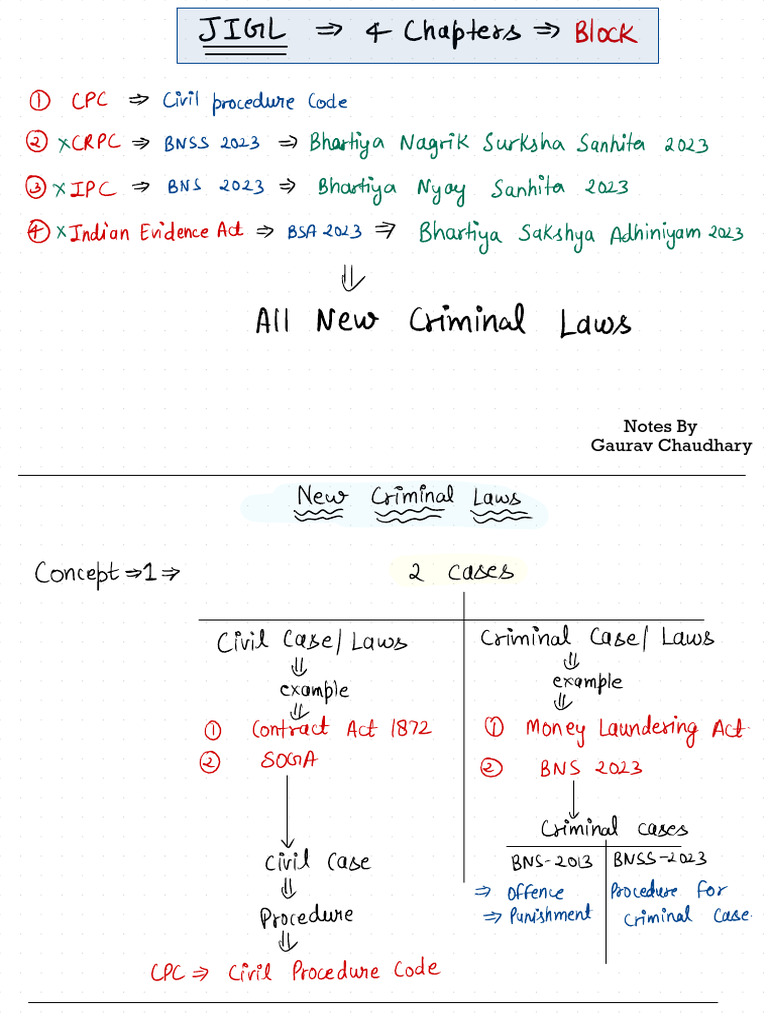 JIGL ⇒ 4 Chapters ⇒ Block
① CPC ⇒ Civil procedure Code
② ×CRPC ⇒ BNSS 2023 ⇒ Bhartiya Nagrik Surksha Sanhita 2023
③ ×IPC ⇒ BNS 2023 ⇒ Bhartiya Nyay Sanhita 2023
④ ×Indian Evidence Act ⇒ BSA 2023 ⇒ Bhartiya Sakshya Adhiniyam 2023
⇓
All New Criminal Laws
Notes By
Gaurav Chaudhary
New Criminal Laws
Concept ⇒ 1 ⇒ 2 cases
Civil Case/Laws
⇓
example
⇓
① Contract Act 1872
② SOGA
↓
Civil Case
⇓
Procedure
⇓
CPC ⇒ Civil Procedure Code
Criminal Case/Laws
⇓
example
⇓
① Money Laundering Act
② BNS 2023
↓
Criminal cases
BNS-2013
⇒ Offence
⇒ Punishment
BNSS-2023
Procedure for
Criminal Case.